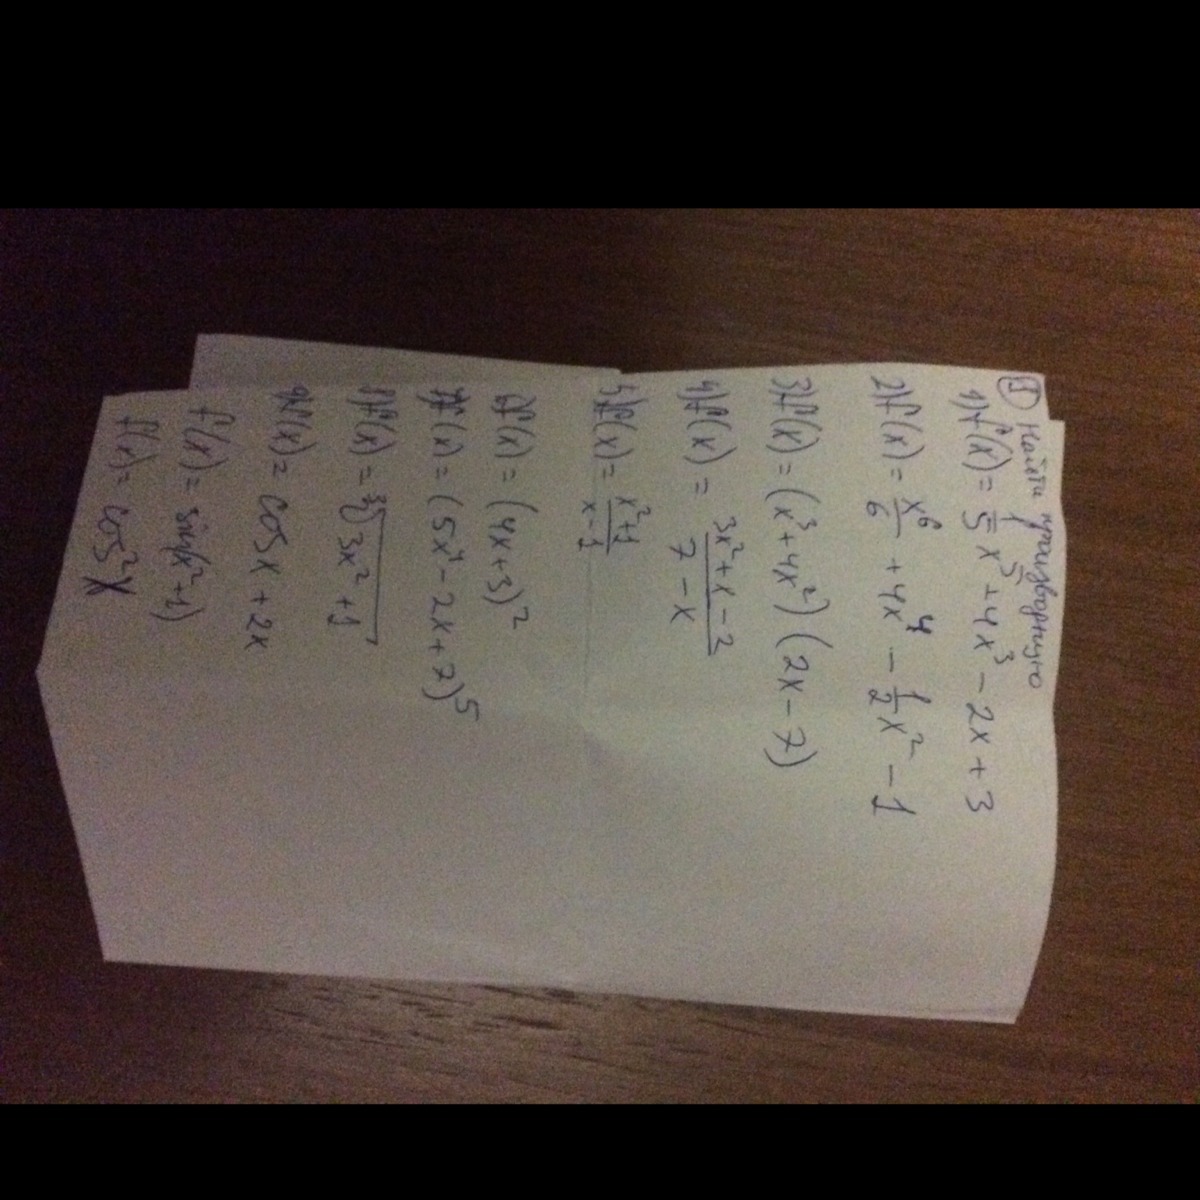 ① Найти производную
1) f(x) = 1/5 x⁵ + 4x³ - 2x + 3
2) f(x) = x⁶/6 + 4x⁴ - 1/2 x² - 1
3) f(x) = (x³ + 4x²) (2x - 7)
4) f(x) = (3x² + x - 2)/(7 - x)
5) f(x) = (x² + 1)/(x - 1)
6) f(x) = (4x + 3)²
7) f(x) = (5x⁴ - 2x + 7)⁵
8) f(x) = ∛(3x² + 1)
9) f(x) = cos x + 2x
f(x) = sin(x² + 1)
f(x) = cos²x